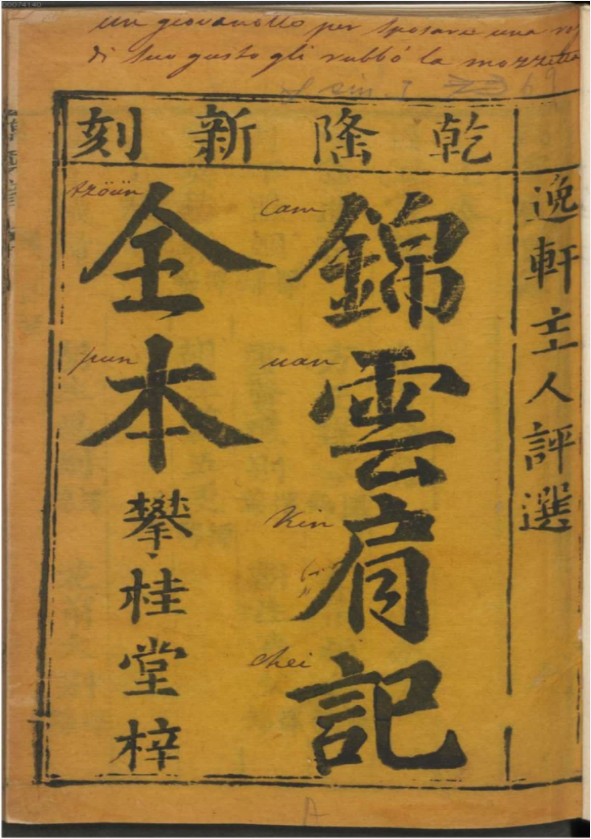 un giovanotto per sposare una
di suo gusto gli rubbó la mozzetta
乾隆新刻
逸軒主人評選
錦雲肩記
cam
uan
Kin
chei
全本
pun
攀桂堂梓
A